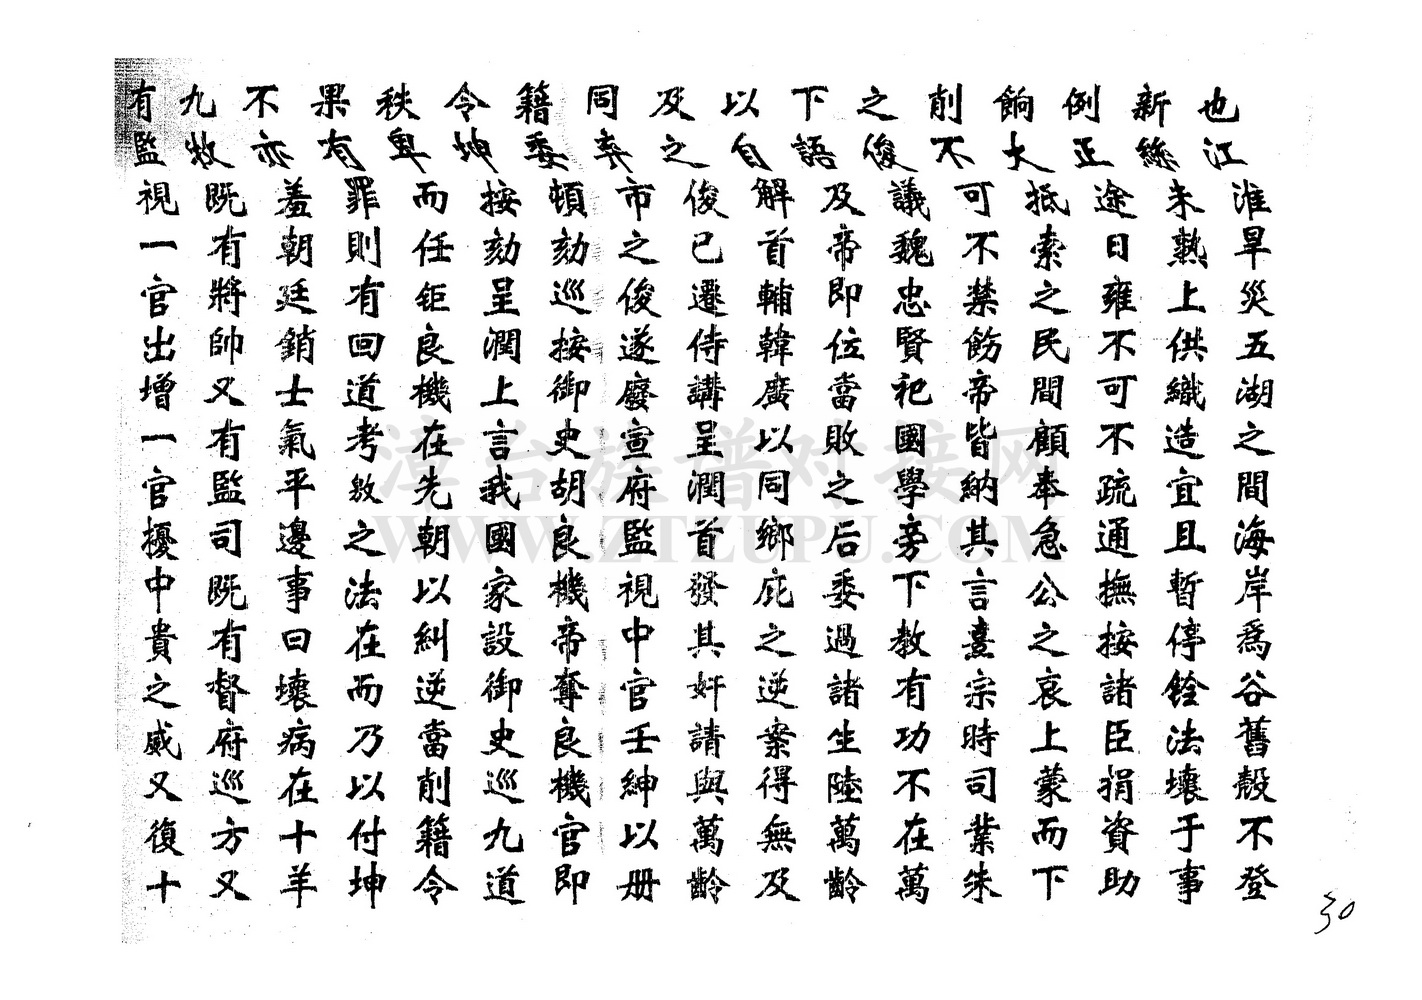 也江淮旱災五湖之間海岸爲谷舊穀不登
新絲未熟上供織造宜且暫停銓法壞于事
例正途日雍不可不疏通撫按諸臣捐資助
餉大抵索之民間顧奉急公之哀上蒙而下
削不可不禁飭帝皆納其言熹宗時司業朱
之俊議魏忠賢祀國學旁下教有功不在萬
下語及帝即位當敗之后委過諸生陸萬齡
以自解首輔韓廣以同鄉庇之逆案得無及
及之俊已遷侍講呈潤首發其奸請與萬齡
同弃市之俊遂廢宣府監視中官王紳以册
籍委頓劾巡按御史胡良機帝奪良機官即
令坤按劾呈潤上言我國家設御史巡九道
秩卑而任鉅良機在先朝以糾逆當削籍令
果有罪則有回道考敕之法在而乃以付坤
不亦羞朝廷銷士氣平邊事曰壞病在十羊
九牧既有將帥又有監司既有督府巡方又
有監視一官出增一官擾中貴之威又復十
30
漳台族谱对接网
WWW.ZTZUPU.COM